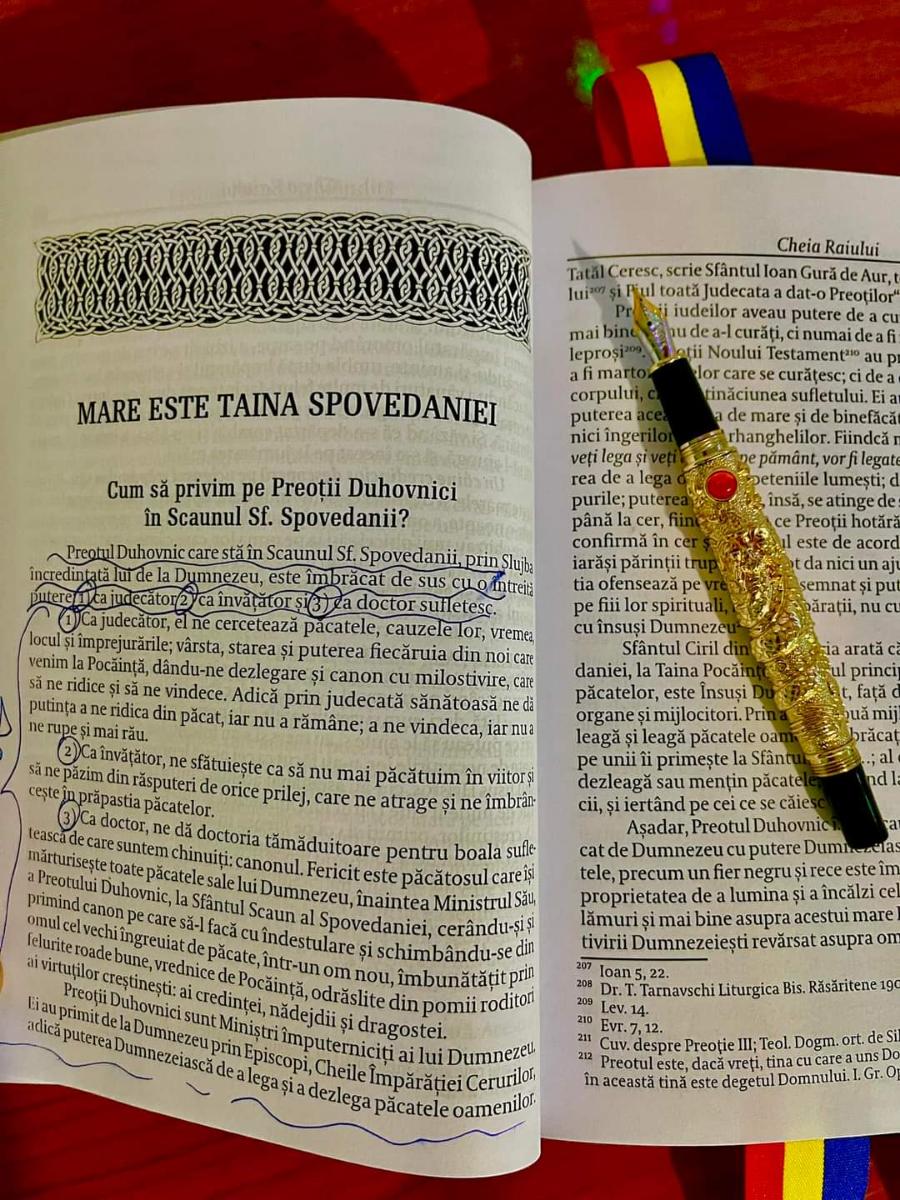 MARE ESTE TAINA SPOVEDANIEI
Cum să privim pe Preoții Duhovnici
în Scaunul Sf. Spovedanii?
Preotul Duhovnic care stă în Scaunul Sf. Spovedanii, prin Slujba
încredințată lui de la Dumnezeu, este îmbrăcat de sus cu o întreită
putere 1) ca judecător 2) ca învățător și 3) ca doctor sufletesc.
1) Ca judecător, el ne cercetează păcatele, cauzele lor, vremea,
locul și împrejurările; vârsta, starea și puterea fiecăruia din noi care
venim la Pocăință, dându-ne dezlegare și canon cu milostivire, care
să ne ridice și să ne vindece. Adică prin judecată sănătoasă ne dă
putința a ne ridica din păcat, iar nu a rămâne; a ne vindeca, iar nu a
ne rupe și mai rău.
2) Ca învățător, ne sfătuiește ca să nu mai păcătuim în viitor și
să ne păzim din răsputeri de orice prilej, care ne atrage și ne îmbrân-
cește în prăpastia păcatelor.
3) Ca doctor, ne dă doctoria tămăduitoare pentru boala sufle-
tească de care suntem chinuiți: canonul. Fericit este păcătosul care își
mărturisește toate păcatele sale lui Dumnezeu, înaintea Ministrul Său,
a Preotului Duhovnic, la Sfântul Scaun al Spovedaniei, cerându-și și
primind canon pe care să-l facă cu îndestulare și schimbându-se din
omul cel vechi îngreuiat de păcate, într-un om nou, îmbunătățit prin
felurite roade bune, vrednice de Pocăință, odrăslite din pomii roditori
ai virtuților creștinești: ai credinței, nădejdii și dragostei.
Preoții Duhovnici sunt Miniștri împuterniciți ai lui Dumnezeu.
Ei au primit de la Dumnezeu prin Episcopi, Cheile Împărăției Cerurilor,
adică puterea Dumnezeiască de a lega și a dezlega păcatele oamenilor.
Cheia Raiului
Tatăl Ceresc, scrie Sfântul Ioan Gură de Aur,
lui²⁰⁷ și Fiul toată Judecata a dat-o Preoților“
iudeilor aveau putere de a
mai bine nu de a-l curăți, ci numai de a fi
leproși²⁰⁹. Noului Testament²¹⁰ au
a fi care se curățesc; ci de a
corpului, sufletului. Ei
puterea de mare și de
nici îngerilor Fiindcă
veți lega și veți pe pământ, vor fi legate
rea de a lega lumești;
purile; puterea însă, se atinge de
până la cer, ce Preoții
confirmă în cer este de acord
iarăși părinții da nici un
tia ofensează pe
pe fiii lor spirituali, nu
cu însuși Dumnezeu
Sfântul Ciril din arată
daniei, la Taina
păcatelor, este Însuși față
organe și mijlocitori. Prin
leagă și leagă păcatele
pe unii îi primește la al
dezleagă sau mențin
cii, și iertând pe cei ce se
Așadar, Preotul Duhovnic
cat de Dumnezeu cu putere
tele, precum un fier negru și rece este
proprietatea de a lumina și a încălzi
lămuri și mai bine asupra acestui mare
tivirii Dumnezeiești revărsat asupra
²⁰⁷ Ioan 5, 22.
²⁰⁸ Dr. T. Tarnavschi Liturgica Bis. Răsăritene
²⁰⁹ Lev. 14.
²¹⁰ Evr. 7, 12.
²¹¹ Cuv. despre Preoție III; Teol. Dogm. ort. de
²¹² Preotul este, dacă vreți, tina cu care a uns
în această tină este degetul Domnului. I. Gr.